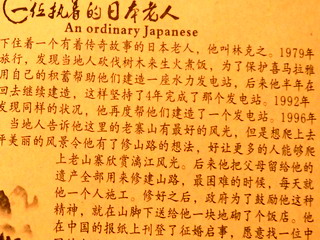 一位执着的日本老人
An ordinary Japanese
下住着一个有着传奇故事的日本老人，他叫林克之。1979年
旅行，发现当地人砍伐树木来生火煮饭，为了保护喜马拉雅
用自己的积蓄帮助他们建造一座水力发电站，后来他丰年在
回去继续建造，这样坚持了4年完成了那个发电站。1992年
发现同样的状况，他再度帮他们建造了一个发电站。1996年
当地人告诉他这里的老寨山有最好的风光，但是想爬上去
美丽的风景令他有了修山路的想法，好让更多的人能够爬
上老山寨欣赏漓江风光。后来他把父母留给他的
遗产全部用来修建山路，最困难的时候，每天就
他一个人施工。修好之后，政府为了鼓励他这种
精神，就在山脚下送给他一块地砌了个饭店。他
在中国的报纸上刊登了征婚启事，愿意找一位中